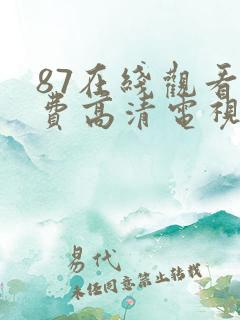 87在綫觀看
費高清電視
易代
未經同意禁止轉載